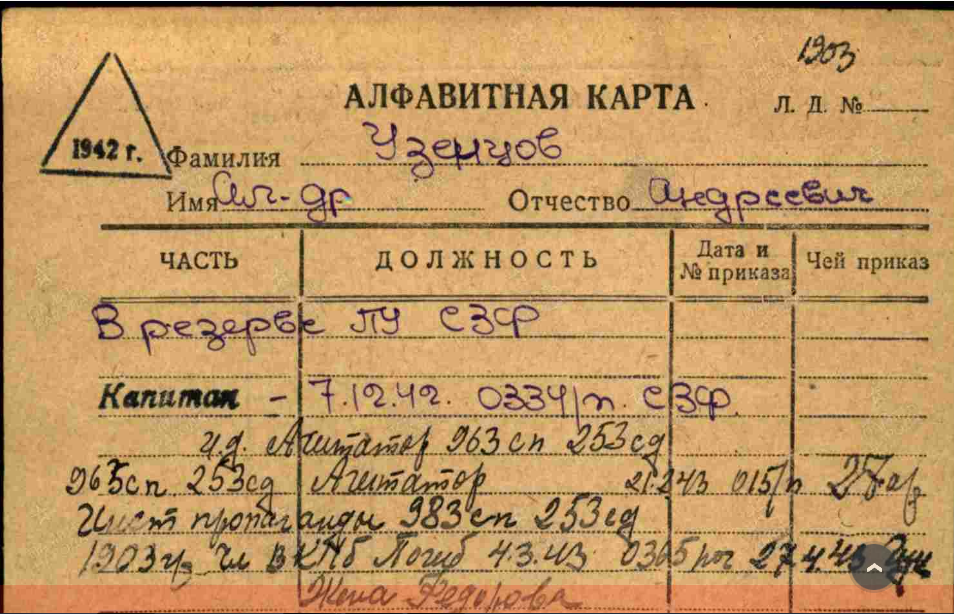 1903
АЛФАВИТНАЯ КАРТА
Л. Д. №
1942 г.
Фамилия Узенцов
Имя Ал-др Отчество Андреевич
ЧАСТЬ ДОЛЖНОСТЬ Дата и № приказа Чей приказ
В резерве ПУ СЗФ
Капитан - 7.12.42. 0334/п. СЗФ.
и.д. Агитатор 963 сп 253 сд
963 сп 253 сд Агитатор 21243 015/п 27 ар
Инст пропаганды 983 сп 253 сд
1903 г Чл ВКПб Погиб 4.3.43 0365 27.4.43
Жена Федорова